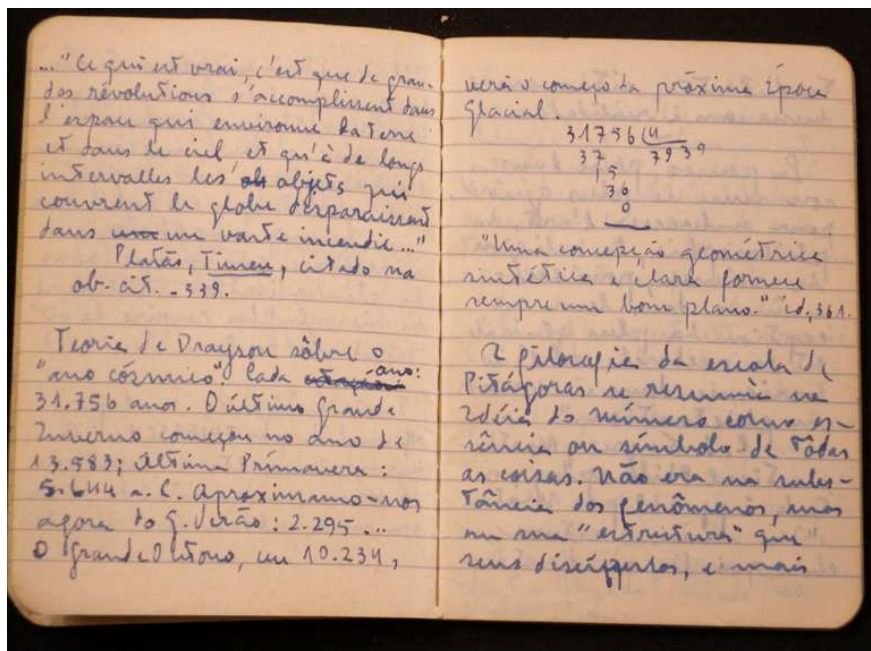 ..."Ce qui est vrai, c'est que de gran-
des révolutions s'accomplissent dans
l'espace qui environne la terre
et dans le ciel, et qu'à de longs
intervalles les objets qui
couvrent le globe disparaissent
dans un vaste incendie..."
Platão, Timeu, citado na
ob. cit. - 339.
Teoria de Drayson sôbre o
"ano cósmico". Cada ano:
31.756 anos. O último Grande
Inverno começou no ano de
13.583; última Primavera:
5.644 a.C. Aproximamo-nos
agora do G. Verão: 2.295...
O Grande Outono, em 10.234,
verá o começo da próxima Época
Glacial.
31756 4
37 7939
15
36
0
"Uma concepção geométrica
sintética e clara fornece
sempre um bom plano." id, 361.
A filosofia da escola de
Pitágoras se resumia na
idéia do número como es-
sência ou símbolo de tôdas
as coisas. Não era na subs-
tância dos fenômenos, mas
na sua "estrutura" que
seus discípulos, e mais